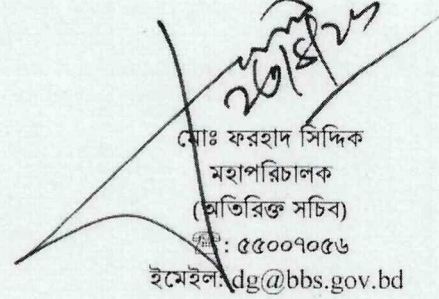 মোঃ ফরহাদ সিদ্দিক
মহাপরিচালক
(অতিরিক্ত সচিব)
☎: ৫৫০০৭০৫৬
ইমেইল: dg@bbs.gov.bd